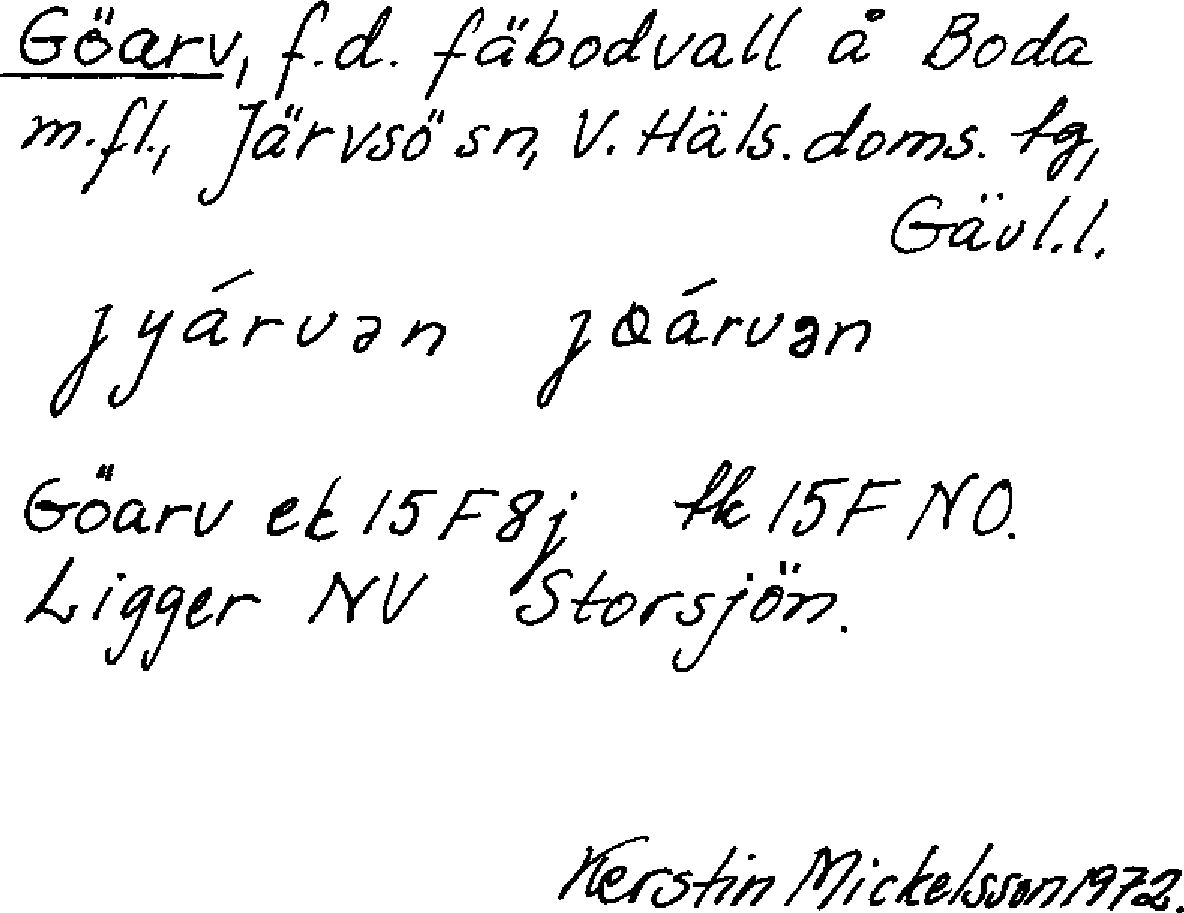 Göarv, f.d. fäbodvall å Boda
m.fl., Järvsö sn, V. Häls. doms. tg,
Gävl.l.
jyárvən jꝋárvən
Göarv ek 15F8j tk 15F NO.
Ligger NV Storsjön.
Kerstin Mickelsson 1972.